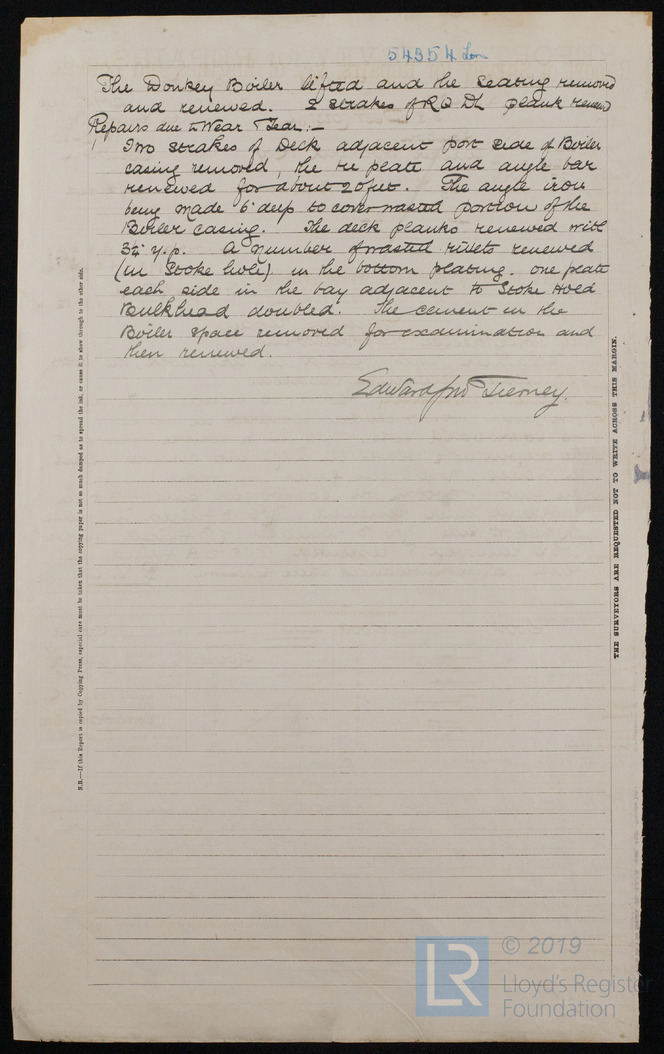 54354 Lon
The Donkey Boiler lifted and the seating removed
and renewed. 2 strakes of R Q Dk plank renewed
Repairs due to Wear & Tear:-
Two strakes of Deck adjacent port side of Boiler
casing removed, the tie plate and angle bar
renewed for about 20 feet. The angle iron
being made 6" deep to cover wasted portion of the
Boiler casing. The deck planks renewed with
3¼" y.p. A number of wasted rivets renewed
(in Stoke hole) in the bottom plating. one plate
each side in the bay adjacent to Stoke Hold
Bulkhead doubled. The cement in the
Boiler space removed for examination and
then renewed.
Edward Tierney.
N.B.—If this Report is copied by Copying Press, especial care must be taken that the copying paper is not so much damped as to spread the ink, or cause it to show through to the other side.
THE SURVEYORS ARE REQUESTED NOT TO WRITE ACROSS THIS MARGIN.
LR
© 2019
Lloyd's Register
Foundation